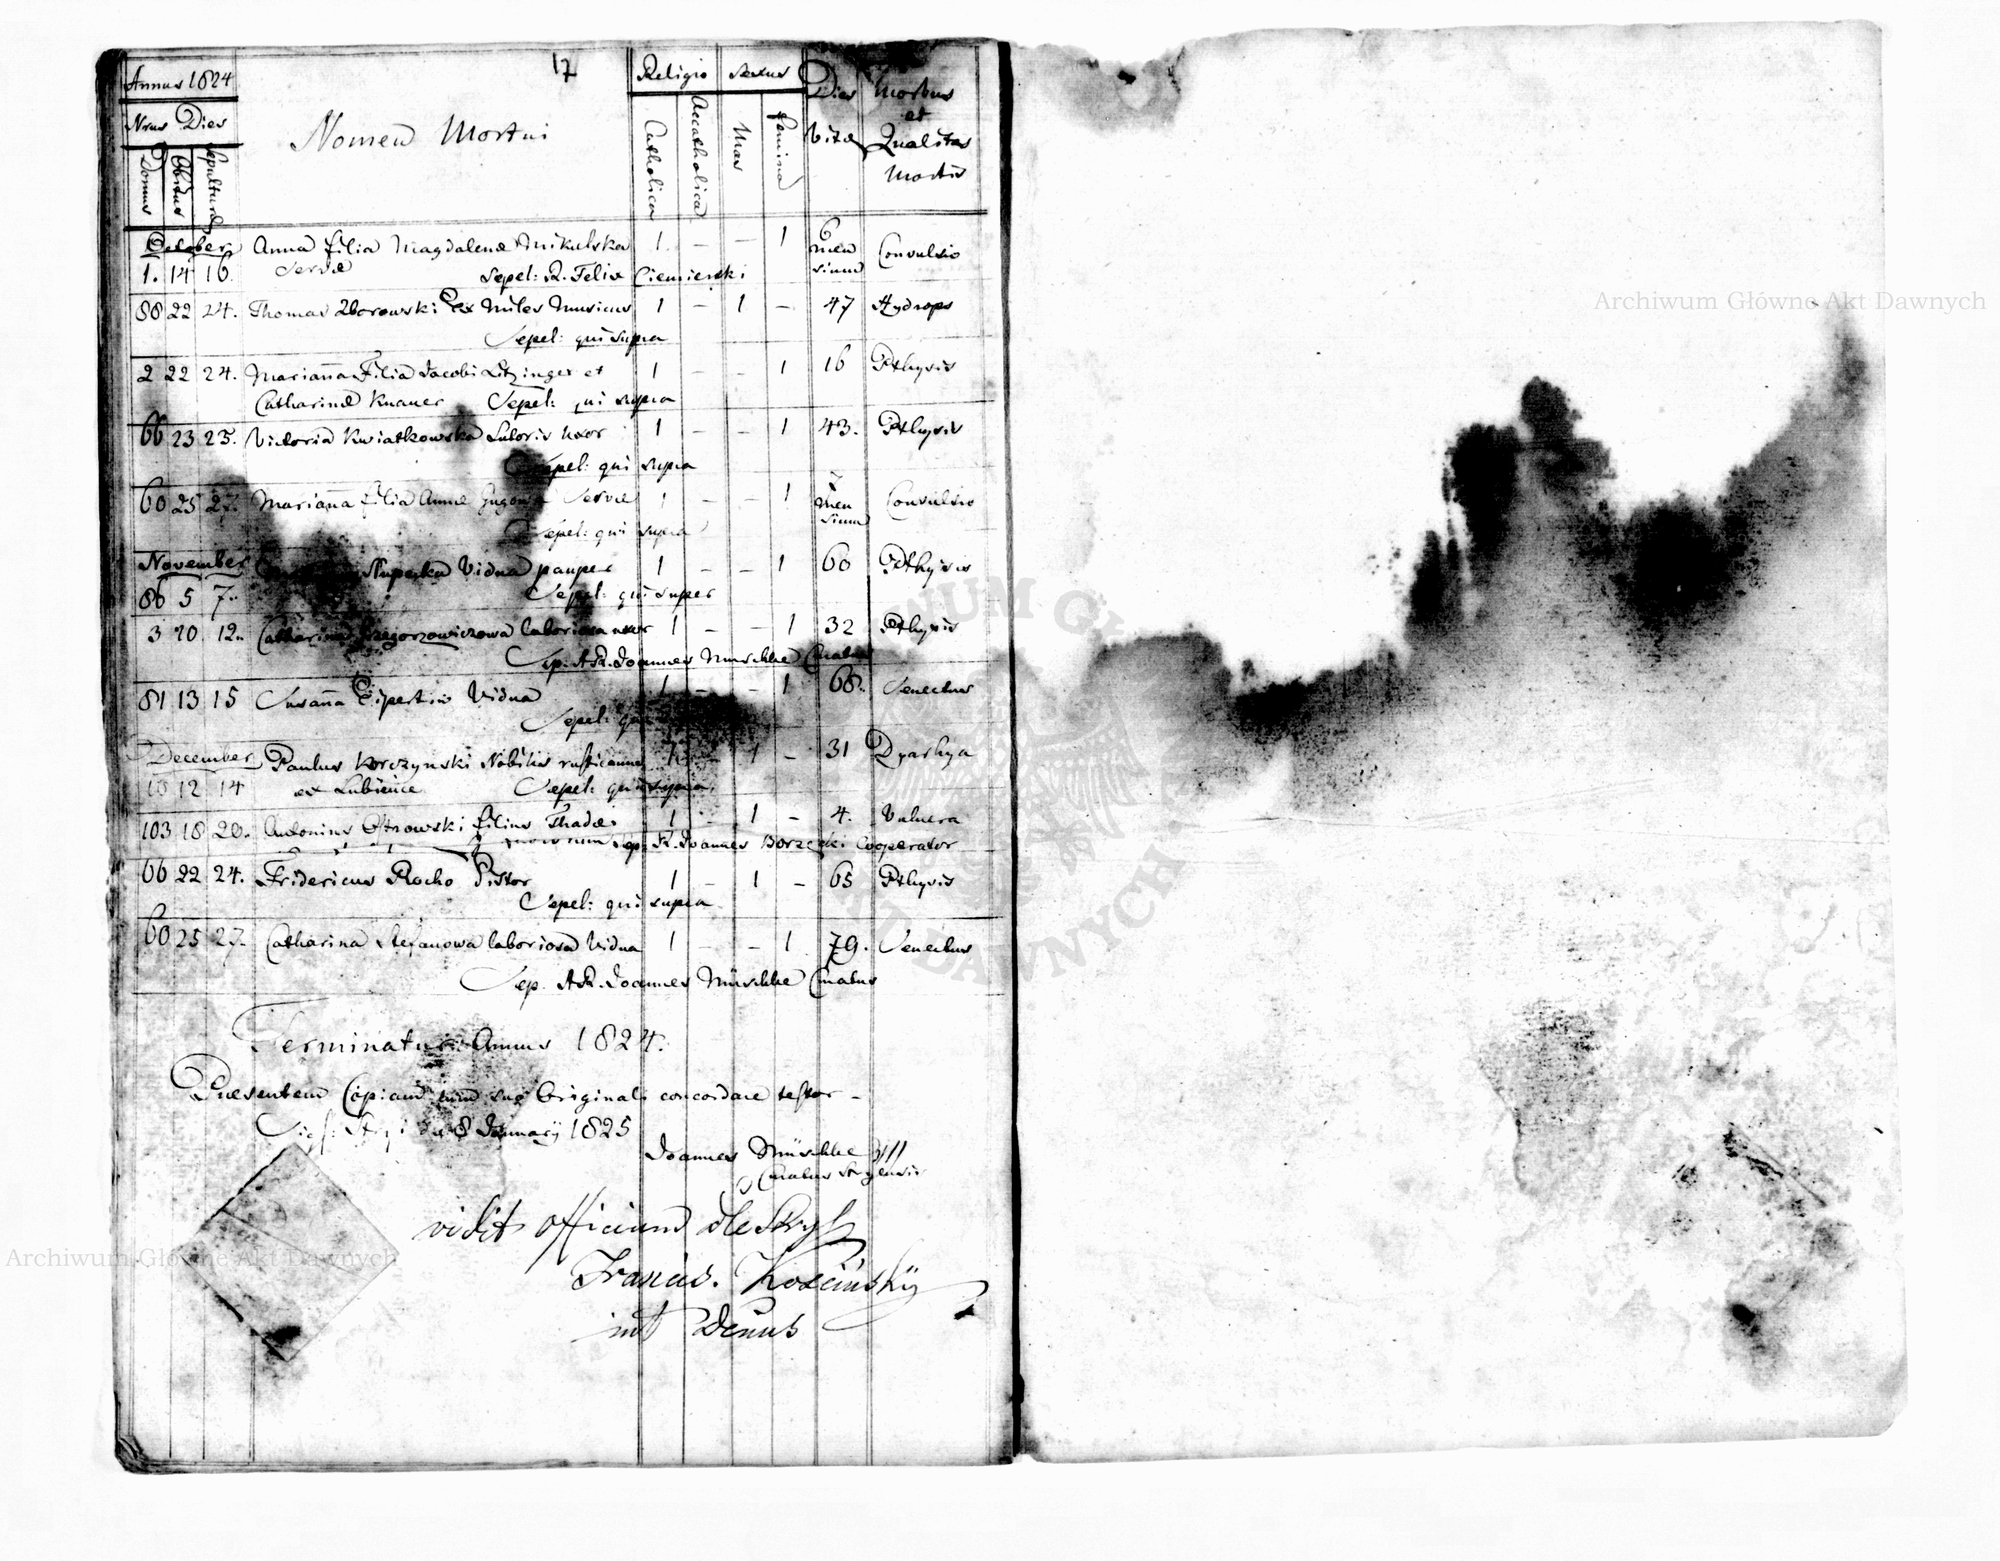 17
Annus 1824
Nrus Dies
Domus Obitus Sepulturæ
Nomen Mortui
Religio Sexus
Catholica Acatholica Mas Femina
Dies Vitæ
Morbus
et
Qualitas
Mortis
October Anna filia Magdalenæ Mikulska 1 – – 1 6 men sium Convulsio
1. 14 16. Servæ Sepel: R. Felix Ciemierski
88 22 24. Thomas Zborowski Ex Miles Musicus 1 – 1 – 47 Hydrops
Sepel: qui supra
2 22 24. Marianna Filia Jacobi Litzinger et 1 – – 1 16 Pthysis
Catharinæ Knauer Sepel: qui supra
66 23 25. Victoria Kwiatkowska Sutoris uxor 1 – – 1 43. Pthysis
Sepel: qui supra
60 25 27. Mariana filia Annæ Servæ 1 – – 1 men sium Convulsio
Sepel: qui supra
November Vidua pauper 1 – – 1 60 Pthysis
86 5 7. Sepel: qui super
3 10 12. Catharina Grzegorzowiczowa laboriosa uxor 1 – – 1 32 Pthysis
Sep. AR. Joannes Müschke Curatus
81 13 15 Susanna Vidua 1 – – 1 68. Senectus
Sepel: qui
December Paulus Korczynski Nobilis rusticanus 1 – 1 – 31 Dyarhya
10 12 14 ex Lubience Sepel: qui supra
103 18 20. Antonius Ostrowski filius Thadei 1 – 1 – 4. Vulnera
Sep: R. Joannes Borzęcki Cooperator
66 22 24. Fridericus Rocho Pistor 1 – 1 – 65 Pthysis
Sepel: qui supra
60 25 27. Catharina Stefanowa laboriosa Vidua 1 – – 1 79. Senectus
Sep. AR. Joannes Müschke Curatus
Terminatur Annus 1824.
Præsentem Copiam cum suo Originali concordare testor –
8 January 1825
Joannes Müschke
Curatus Stryensis
vidit officium dec Stryi
Francis. Kosciński
Archiwum Główne Akt Dawnych
Archiwum Główne Akt Dawnych